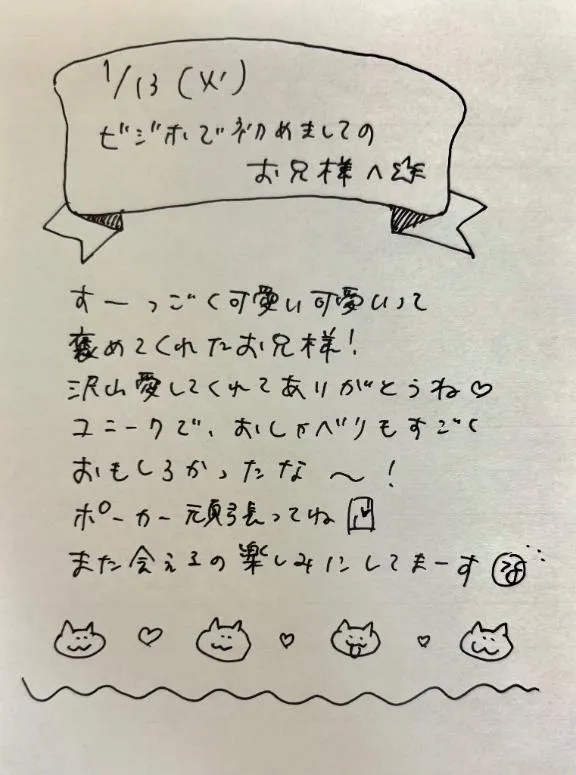 1/13(火)
ビジホで初めましての
お兄様へ
すーっごく可愛い可愛いって
褒めてくれたお兄様！
沢山愛してくれてありがとうね♡
ユニークで、おしゃべりもすごく
おもしろかったな〜！
ポーカー頑張ってね
また会えるの楽しみにしてまーす